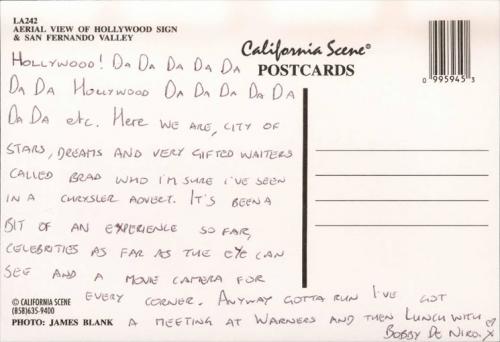 LA242
AERIAL VIEW OF HOLLYWOOD SIGN
& SAN FERNANDO VALLEY
California Scene®
POSTCARDS
0 995945 3
HOLLYWOOD! DA DA DA DA DA
DA DA HOLLYWOOD DA DA DA DA DA
DA DA etc. Here WE ARE, CITY OF
STARS, DREAMS AND VERY GIFTED WAITERS
CALLED BRAD WHO I'M SURE I'VE SEEN
IN A CHRYSLER ADVERT. IT'S BEEN A
BIT OF AN EXPERIENCE SO FAR,
CELEBRITIES AS FAR AS THE EYE CAN
SEE AND A MOVIE CAMERA FOR
EVERY CORNER. ANYWAY GOTTA RUN I'VE GOT
A MEETING AT WARNERS AND THEN LUNCH WITH
BOBBY DE NIRO. X
© CALIFORNIA SCENE
(858)635-9400
PHOTO: JAMES BLANK